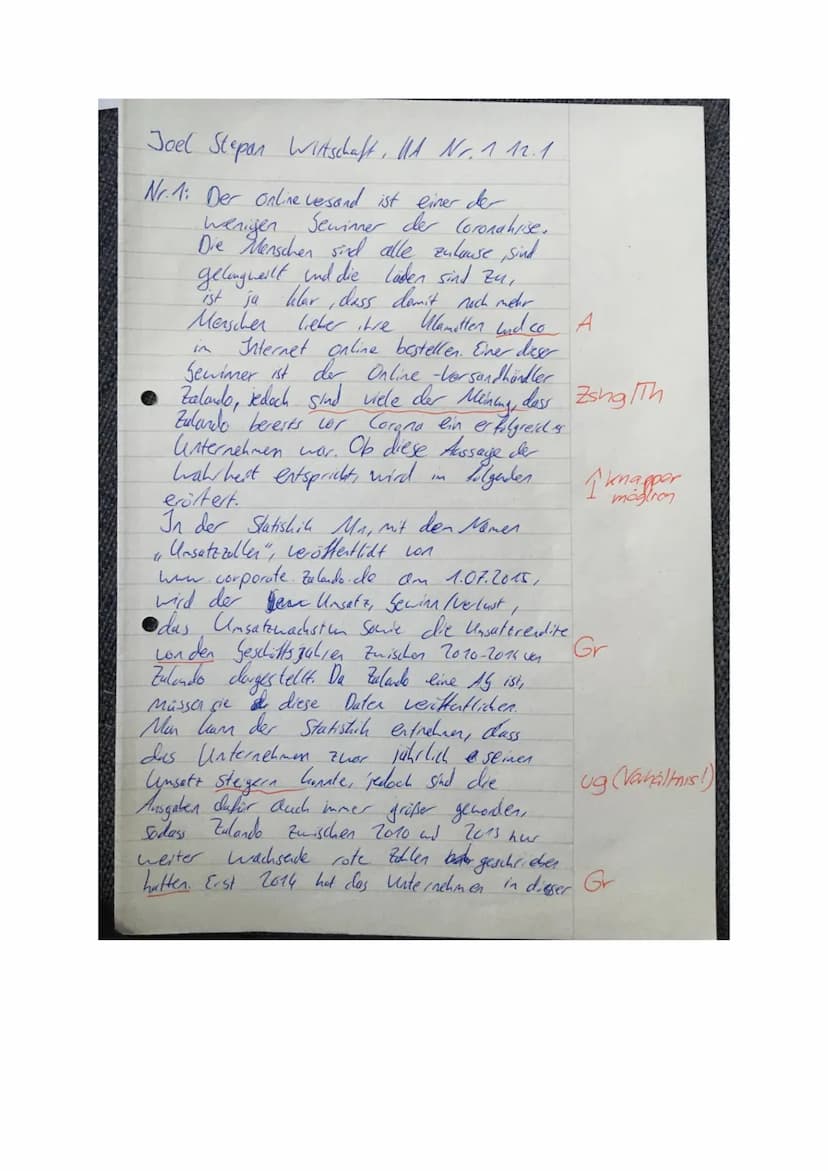 Joel Stepan Wirtschaft, HA Nr. 1 12.1
Nr. 1: Der onlineversand ist einer der
wenigen Gewinner der Coronakrise.
Die Menschen sind alle zuhause, sind
gelangweilt und die Läden sind zu,
ist ja klar, dass damit noch mehr
Menschen lieber ihre Klamotten und co A
im Internet online bestellen. Einer dieser
Gewinner ist der Online-Versandhändler
Zalando, jedoch sind viele der Meinung, dass Zshg/Th
Zalando bereits vor Corona ein erfolgreiches
Unternehmen war. Ob diese Aussage der
Wahrheit entspricht, wird im folgenden ↑ knapper
erörtert. möglich
In der Statistik M1, mit dem Namen
„Umsatzzahlen", veröffentlicht von
www.corporate.zalando.de am 1.07.2015,
wird der Umsatz, Gewinn/Verlust,
das Umsatzwachstum sowie die Umsatzrendite
von den Geschäftsjahren zwischen 2010-2014 von Gr
Zalando dargestellt. Da Zalando eine AG ist,
müssen sie diese Daten veröffentlichen.
Man kann der Statistik entnehmen, dass
das Unternehmen zwar jährlich seinen
Umsatz steigern konnte, jedoch sind die ug (Verhältnis!)
Ausgaben dafür auch immer größer geworden,
sodass Zalando zwischen 2010 und 2013 nur
weiter wachsende rote Zahlen geschrieben
hatten. Erst 2014 hat das Unternehmen in dieser Gr